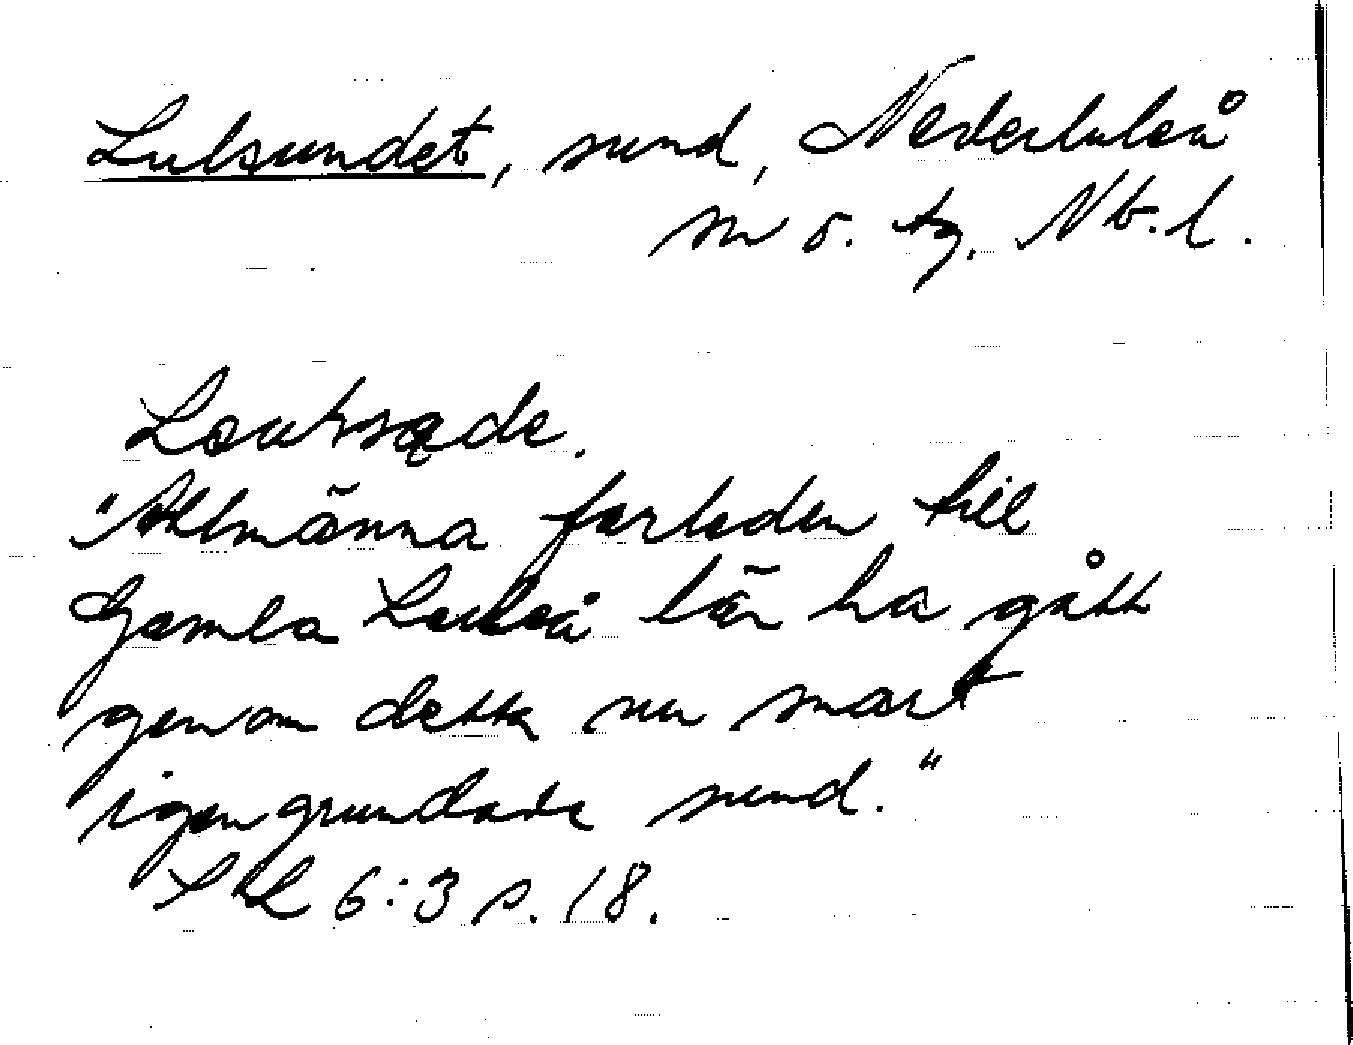 Lulsundet, sund, Nederluleå
sn o. tg. Nb.l.
"Allmänna farleden till
Gamla Luleå lär ha gått
genom detta nu snart
igengrundade sund."
6:3 s. 18.